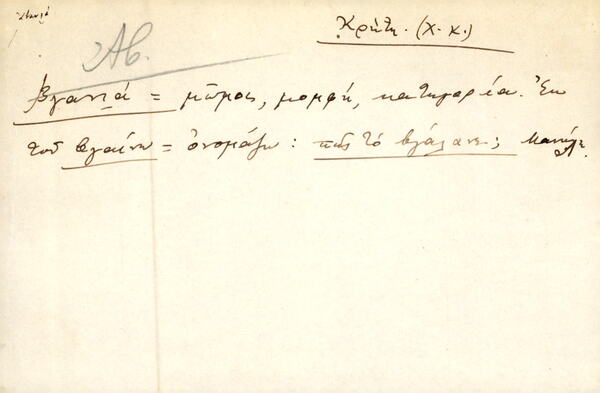 Κρήτη. (Χ. Κ.)
Ἀβ.
βγανιά = μῶμος, μομφή, κατηγορία. Ἐκ
τοῦ βγαίνω = ὀνομάζω: πῶς τὸ βγάλανε;